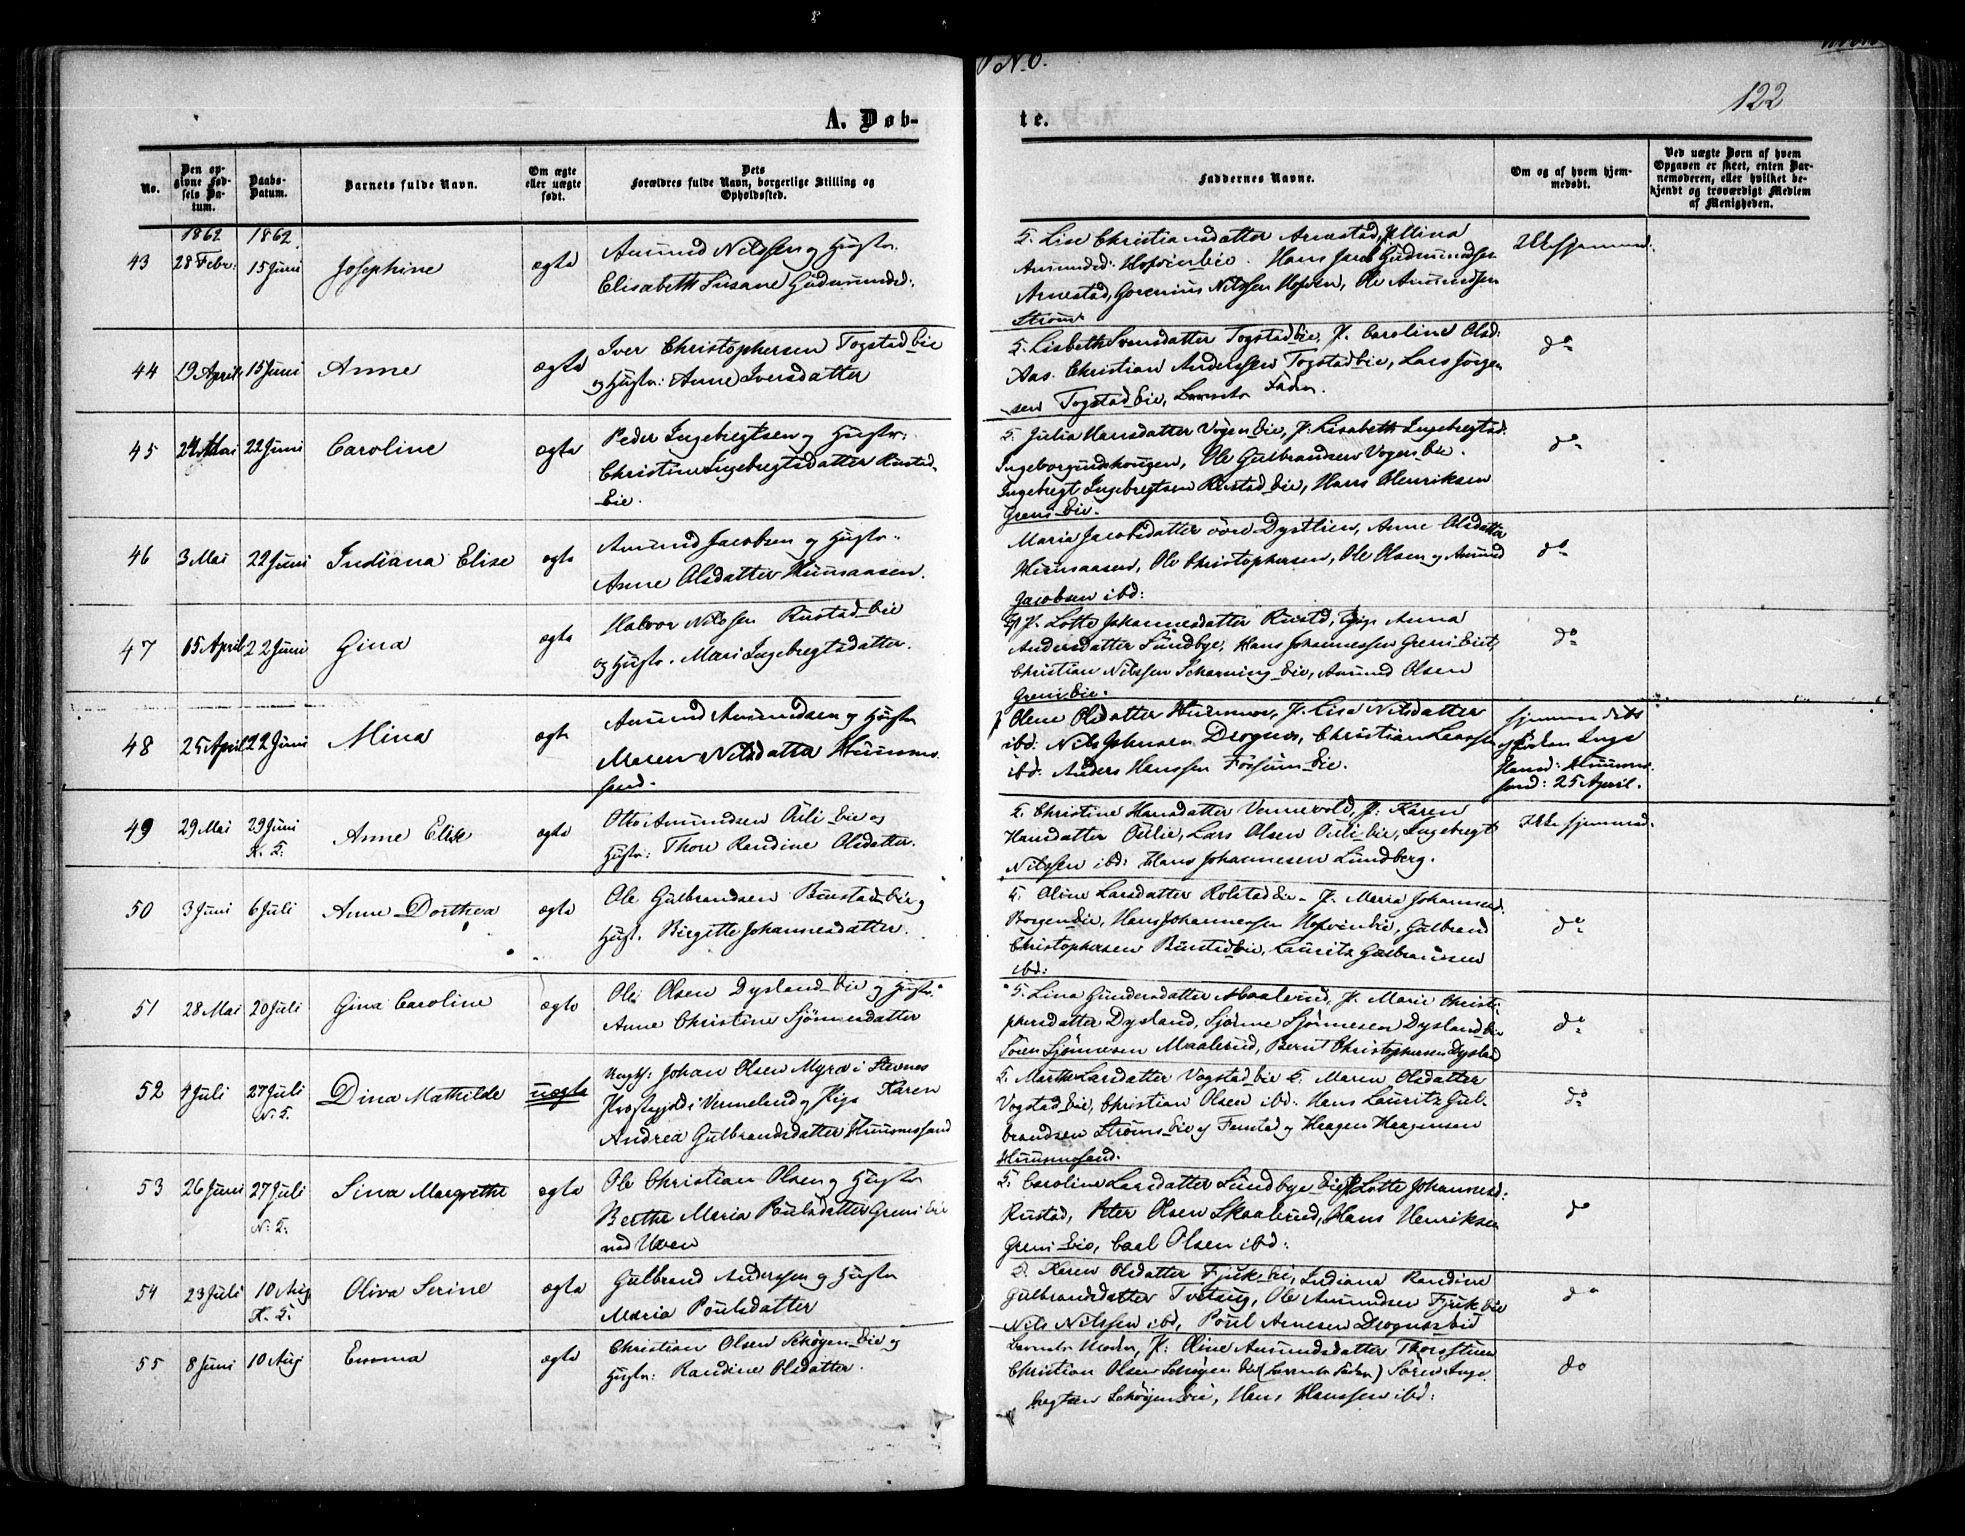 No. 6.
122
A. Døb-
te.
No.
Den op-
givne Fød-
sels Da-
tum.
Daabs-
Datum.
Barnets fulde Navn.
Om ægte
eller uægte
født.
Dets
Forældres fulde Navn, borgerlige Stilling og
Opholdssted.
Faddernes Navne.
Om og af hvem hjem-
medøbt.
Ved uægte Børn af hvem
Opgaven er skeet, enten Bar-
nemoderen, eller hvilket be-
kjendt og troværdigt Medlem
af Menigheden.
1862 1862
43 28 Febr: 15 Juni Josephine ægte
Amund Nilssen og Hustr.
Elisabeth Susane Gudmundsd:
G. Lise Christiansdatter Arnestad, P. Mina
Amundsd: Hofvin Eie. Hans Jacob Gudmundsen
Arnestad, Gorenius Nilssen Hofvin, Ole Amundsen
Strøm
Ikke hjemmed:
44 19 April 15 Juni Anne ægte
Iver Christophersen Togstad Eie
og Hustr: Anne Iversdatter
G. Lisbeth Svensdatter Togstad Eie, P. Caroline Olsd:
Aas. Christian Anderssen Togstad Eie, Lars Jørgen-
sen Togstad Eie, Barnets Fader.
do
45 24 Mai 22 Juni Caroline ægte
Peder Ingebregtsen og Hustr:
Christine Ingebregtsdatter Rustad
Eie.
G. Julia Hansdatter Vogen Eie, P. Lisabeth Ingebregtsd:
Ole Gulbrandsen Vogen Eie.
Ingebregt Ingebregtsen Rustad Eie, Hans Henriksen
Greni Eie.
do
46 3 Mai 22 Juni Indiana Elise ægte
Amund Jacobsen og Hustr.
Anne Olsdatter Huusaasen.
Maria Jacobsdatter øvre Dystlien, Anne Olsdatter
Huusaasen, Ole Christophersen, Ole Olsen og Amund
Jacobsen ibd:
do
47 15 April 22 Juni Gina ægte
Halvor Nilssen Rustad Eie
og Hustr. Mari Ingebregtsdatter.
P. Lotte Johannesdatter Rustd, Pige Anna
Andersdatter Sundbye, Hans Johannessen Greni Eiet,
Christian Nilssen Scharning Eie, Amund Olsen
Greni Eie.
do
48 25 April 22 Juni Mina ægte
Amund Amundsen og Hustr
Maren Nilsdatter Huumes-
sand.
Olene Olsdatter Huumnes, P. Lise Nilsdatter
ibd: Nils Johnsen Drognes, Christian Larssen
ibd: Anders Hanssen Fossum Eie.
hjemmedøbt
Inge
Hansd: Huumes-
sand: 25 April.
49 29 Mai 29 Juni Anne Elise ægte
K. T.
Otto Amundsen Oulie Eie og
Hustr: Thore Randine Olsdatter.
G. Christine Hansdatter Vennevold, P. Karen
Hansdatter Oulie, Lars Olsen Ouli Eie, Ingebregt
Nilssen ibd: Hans Johannesen Lundberg.
Ikke hjemmed:
50 3 Juni 6 Juli Anne Dorthea ægte
Ole Gulbrandsen Bunstad Eie og
Hust. Birgitte Johannesdatter.
G. Oline Larsdatter Rolstad Eie - P. Maria Johannesd:
Borgen Eie, Hans Johannessen Hofvin Eie, Gulbrand
Christophersen Bunstad Eie, Lauritz Gulbrandsen
ibd:
do
51 28 Mai 20 Juli Gina Caroline ægte
Ole Olsen Dysland Eie og Hustr.
Anne Christine Sjønnesdatter
G. Lina Gundersdatter Maalerud, P. Marie Christo-
phersdatter Dysland, Sjønne Sjønnesen Dysland Eie
Søren Sjønnesen Maalerud, Bernt Christophersen Dysland
do
52 4 Juli 27 Juli Dina Mathilde uægte
N. T.
Ungk: Johan Olsen Myra i Stavnes
Præstegjeld i Vermelund og Pige Karen
Andrea Gulbrandsdatter Huumessand
G. Marthe Larsdatter Vogstad Eie G. Maren Olsdatter
Vogstad Eie, Christian Olsen ibd: Hans Lauritz Gul-
brandsen Strøms Eie og Haagen Haagensen
Huumesand.
do
53 26 Juni 27 Juli Lina Margrethe ægte
N. T.
Ole Christian Olsen og Hustr
Berthe Maria Poulsdatter Greni Eie
ved Uven
G. Caroline Larsdatter Sundbye Eie, P. Lotte Johannesd:
Rustad, Peter Olsen Skaalerud, Hans Henriksen
Greni Eie, Carl Olsen ibd:
do
54 23 Juli 10 Aug Oliva Serine ægte
K. T.
Gulbrand Anderssen og Hustr
Maria Poulsdatter
G. Karen Olsdatter Fjuk Eie, Indiana Randine
Gulbrandsdatter Tveterng, Ole Amundsen Fjuk Eie
Nils Nilssen ibd, Poul Arnesen Drognes Eie
do
55 8 Juni 10 Aug Emma ægte
Christian Olsen Schøyen Eie og
Hustr: Randine Olsdatter.
Barnets Moder, P. Oline Amundsdatter Thorsstuen
Christian Olsen Schøyen Eie (Barnets Fader) Søren Inge-
bregtsen Schøyen Eie, Hans Hanssen ibd:
do